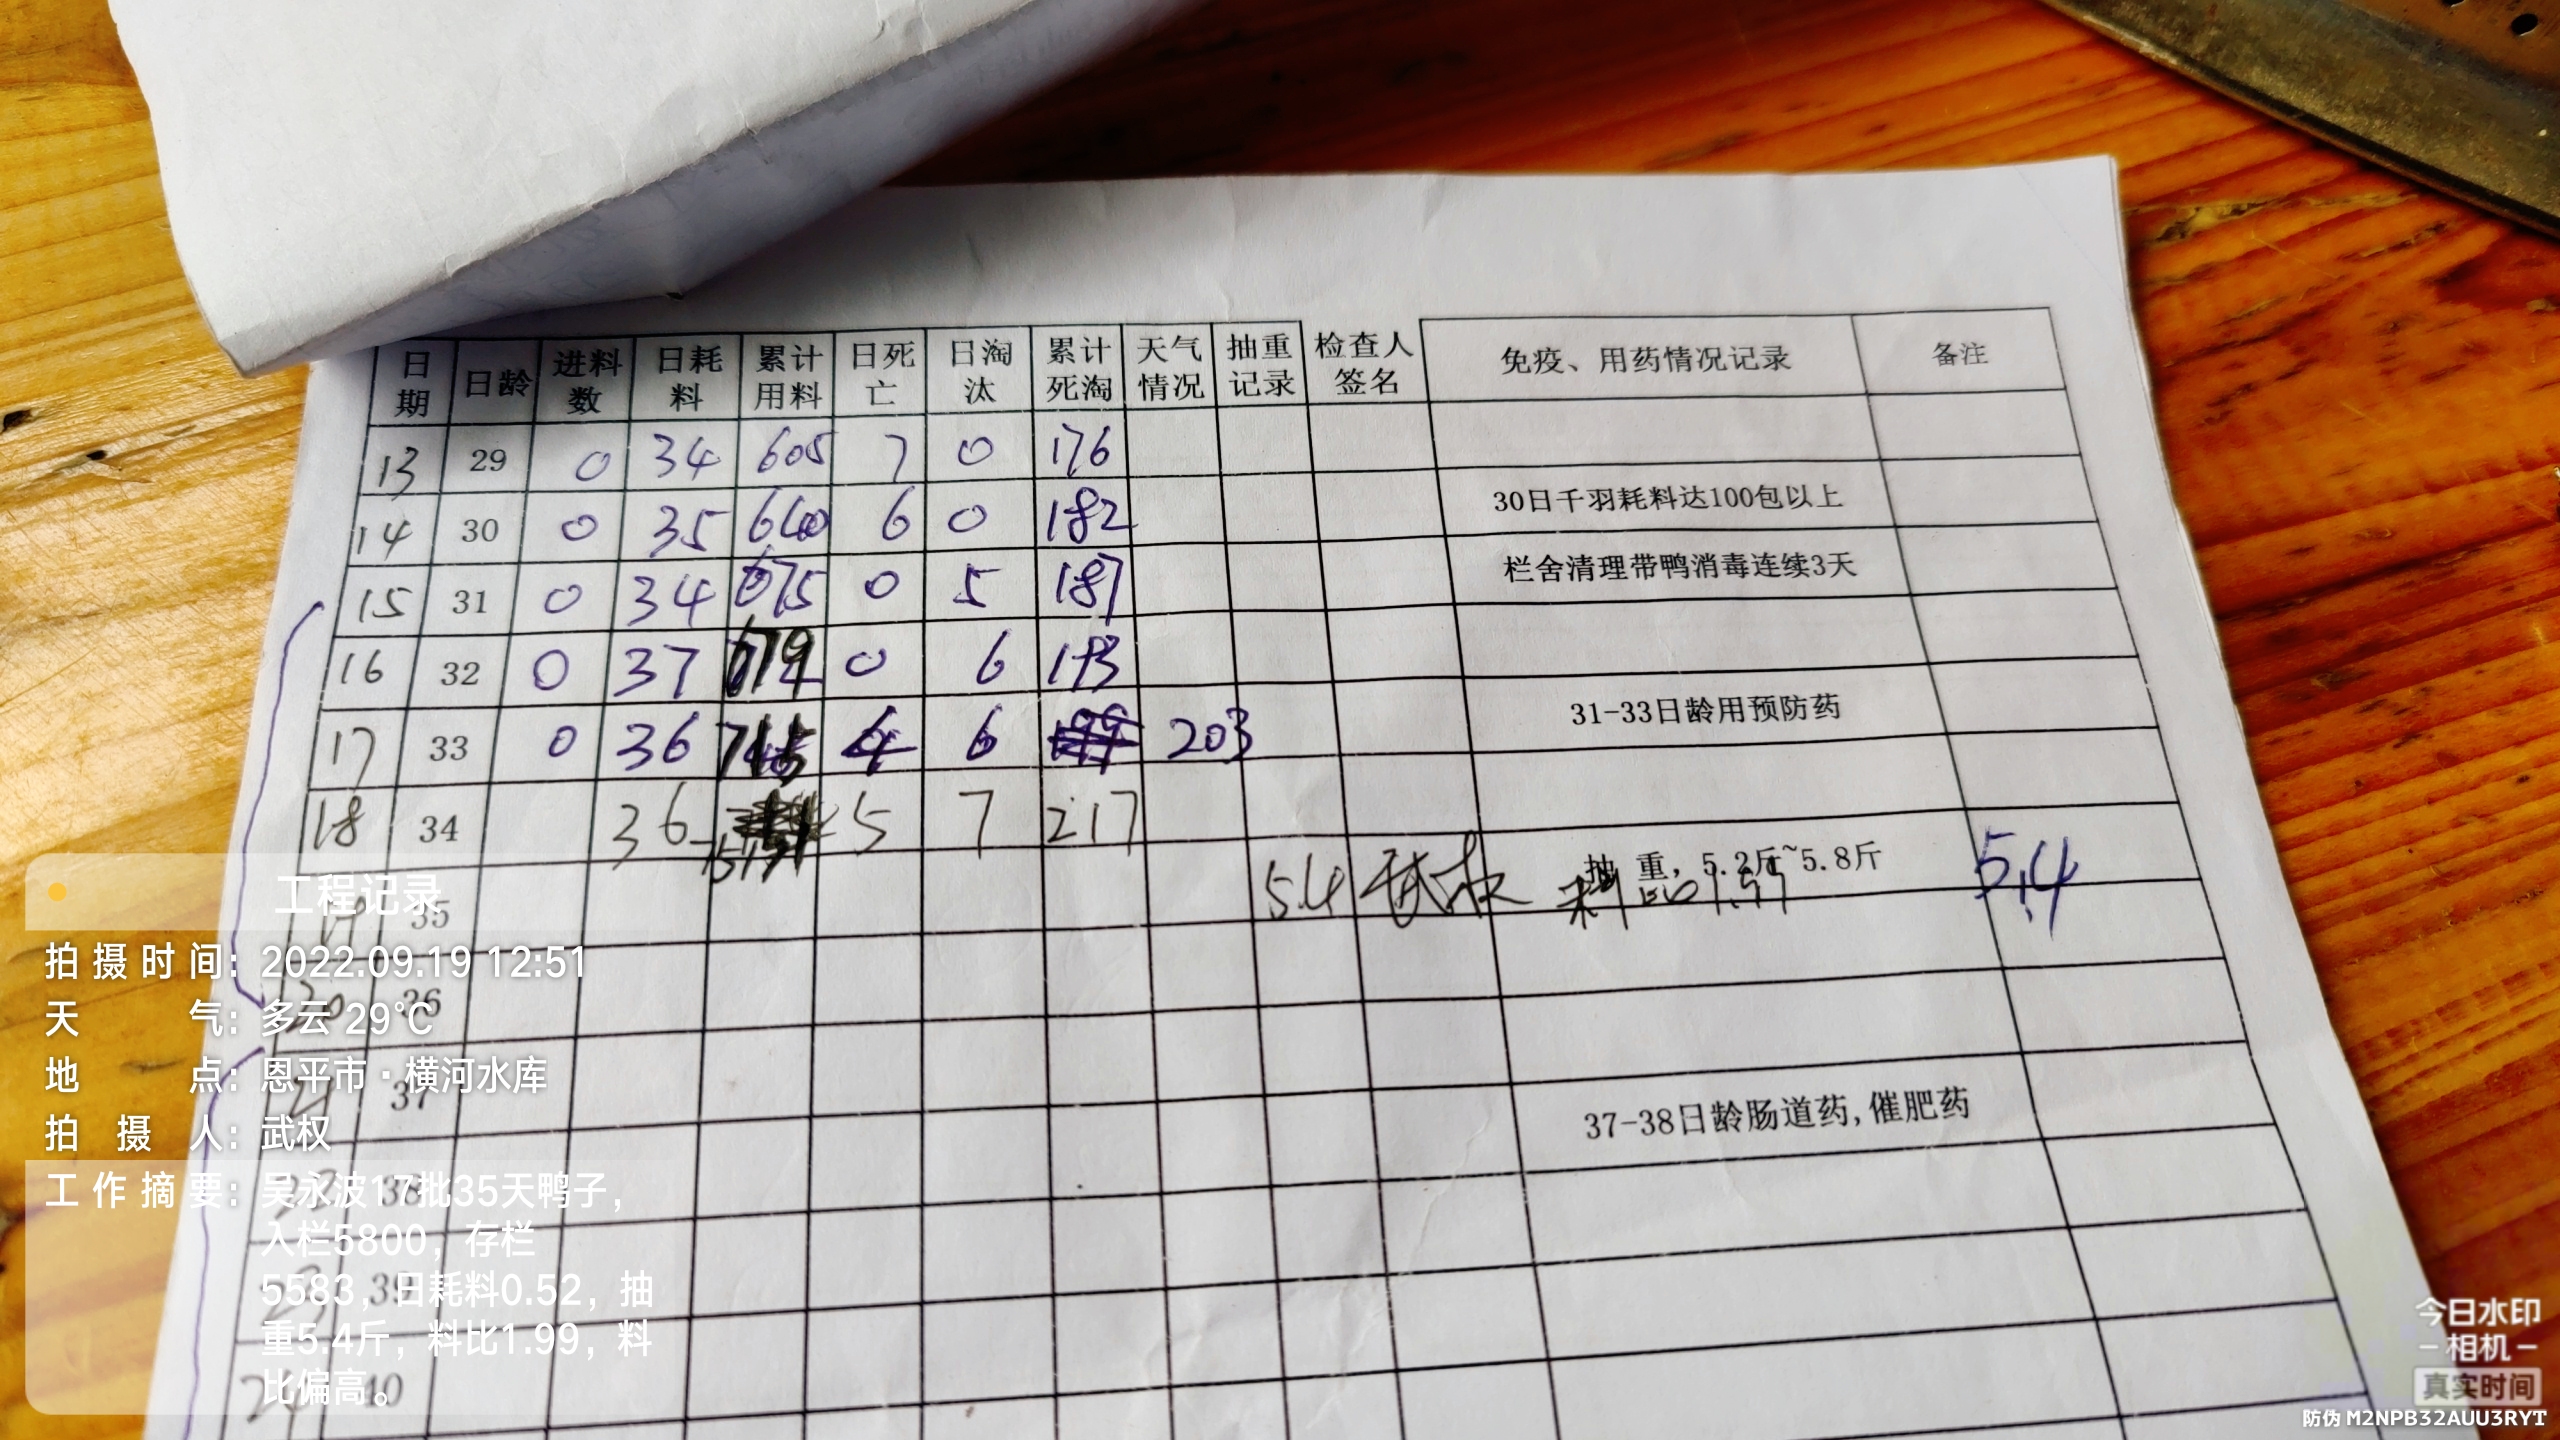 日期 日龄 进料数 日耗料 累计用料 日死亡 日淘汰 累计死淘 天气情况 抽重记录 检查人签名 免疫、用药情况记录 备注
13 29 0 34 605 7 0 176
14 30 0 35 640 6 0 182 30日千羽耗料达100包以上
15 31 0 34 675 0 5 187 栏舍清理带鸭消毒连续3天
16 32 0 37 0 6 193
17 33 0 36 715 4 6 203 31-33日龄用预防药
18 34 36 751 5 7 217
19 35 5.4 武权 抽 重，5.2斤~5.8斤 5.4
料比1.99
20 36
21 37 37-38日龄肠道药,催肥药
22 38
23 39
40
工程记录
拍摄时间：2022.09.19 12:51
天气：多云 29℃
地点：恩平市·横河水库
拍摄人：武权
工作摘要：吴永波17批35天鸭子，
入栏5800，存栏
5583，日耗料0.52，抽
重5.4斤，料比1.99，料
比偏高。
今日水印
-相机-
真实时间
防伪 M2NPB32AUU3RYT